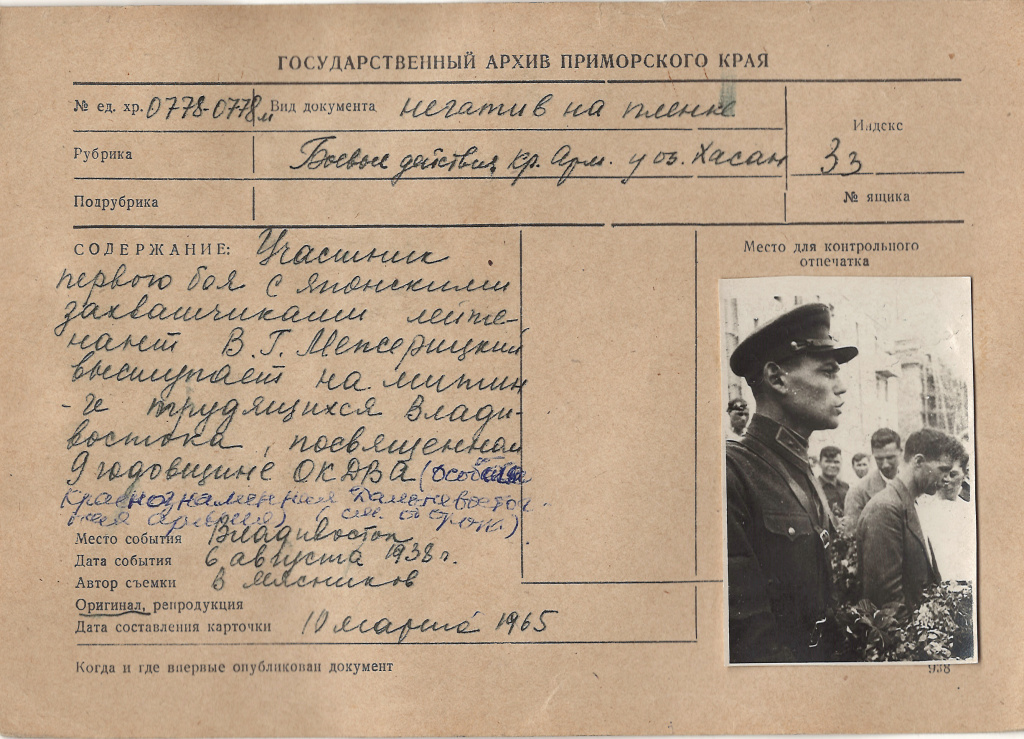 ГОСУДАРСТВЕННЫЙ АРХИВ ПРИМОРСКОГО КРАЯ
№ ед. хр. 0778-0778м Вид документа негатив на пленке
Индекс
Рубрика Боевые действия Кр. Арм. у оз. Хасан 33
Подрубрика № ящика
СОДЕРЖАНИЕ: Участник
первого боя с японскими
захватчиками лейте-
нант В. Г. Межерицкий
выступает на митин
-ге трудящихся Влади-
востока, посвященном
9 годовщине ОКДВА (особая
Краснознаменная Дальневосточ-
ная армия) (см. об.)
Место события Владивосток
Дата события 6 августа 1938 г.
Автор съемки В Мясников
Оригинал, репродукция
Дата составления карточки 10 марта 1965
Когда и где впервые опубликован документ
Место для контрольного
отпечатка
938